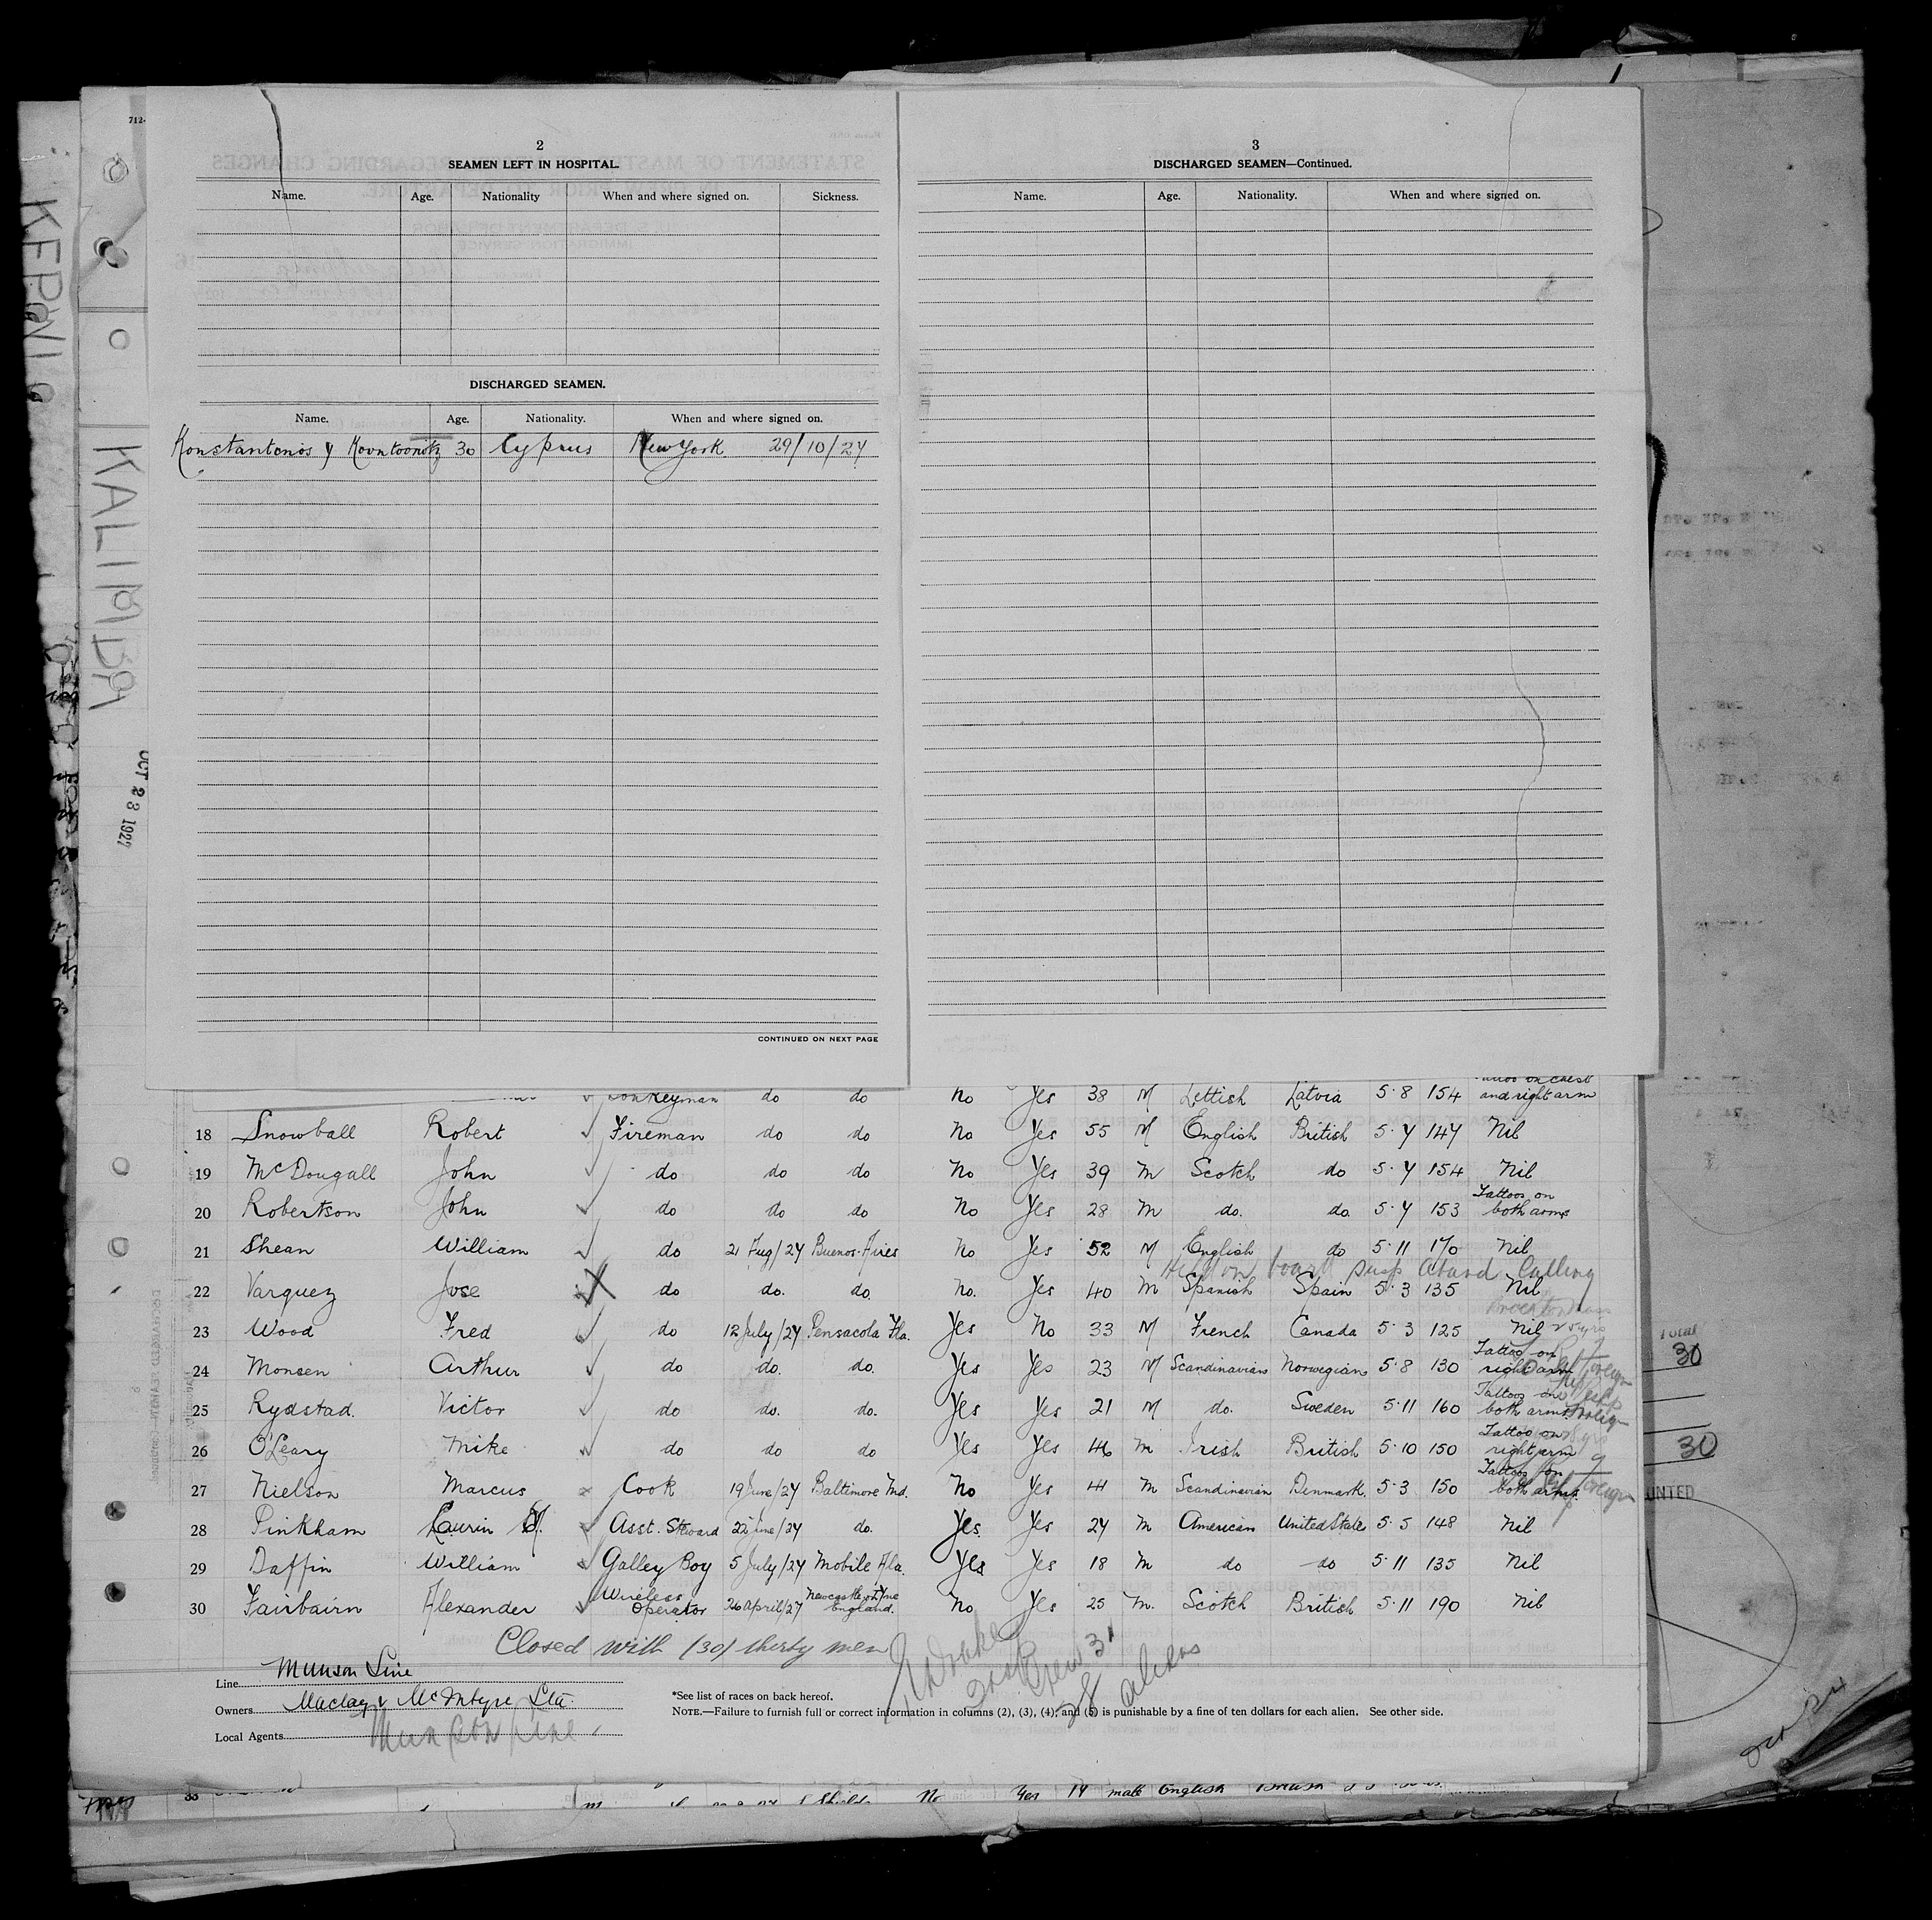 2
SEAMEN LEFT IN HOSPITAL.
Name. Age. Nationality When and where signed on. Sickness.
DISCHARGED SEAMEN.
Name. Age. Nationality. When and where signed on.
Konstantonis 30 Cyprus New York 29/10/27
CONTINUED ON NEXT PAGE
3
DISCHARGED SEAMEN—Continued.
Name. Age. Nationality. When and where signed on.
KALIMBA
OCT 28 1927
do do No Yes 38 M Lettish Latvia 5·8 154 and right arm
18 Snowball Robert Fireman do do No Yes 55 M English British 5·7 147 Nil
19 McDougall John do do do No Yes 39 M Scotch do 5·7 154 Nil
20 Robertson John do do do No Yes 28 M do. do 5·7 153 Tattoos on both arms
21 Shean William do 21 Aug/27 Buenos Aires No Yes 52 M English do 5·11 170 Nil
22 Varquez Jose do do. do. No. Yes 40 M Spanish Spain 5·3 135 Nil
23 Wood Fred do 12 July/27 Pensacola Fla. Yes No 33 M French Canada 5·3 125 Nil
24 Monsen Arthur do do. do. Yes Yes 23 M Scandinavian Norwegian 5·8 130 Tattoo on right arm
25 Rydstad. Victor do do. do. Yes Yes 21 M do. Sweden 5·11 160 Tattoos one both arms
26 O'Leary Mike do do do Yes Yes 46 M Irish British 5·10 150 Tattoo on right arm
27 Nielson Marcus Cook 19 June/27 Baltimore Md. No Yes 41 M Scandinavian Denmark. 5·3 150 Tattoos on both arms.
28 Pinkham Laurin Asst. Steward 22 June/27 do. Yes Yes 27 M American United States 5·5 148 Nil
29 Daffin William Galley Boy 5 July/27 Mobile Ala. Yes Yes 18 M do do 5·11 135 Nil
30 Fairbairn Alexander Wireless Operator 26 April/27 Newcastle on Tyne England. No Yes 25 M. Scotch British 5·11 190 Nil
Closed with (30) thirty men
Crew 31
28 aliens
Line Munson Line
Owners Maclay & McIntyre Ltd.
Local Agents Munson Line
*See list of races on back hereof.
NOTE.—Failure to furnish full or correct information in columns (2), (3), (4), and (5) is punishable by a fine of ten dollars for each alien. See other side.
Total
30
30
No Yes 19 male English British